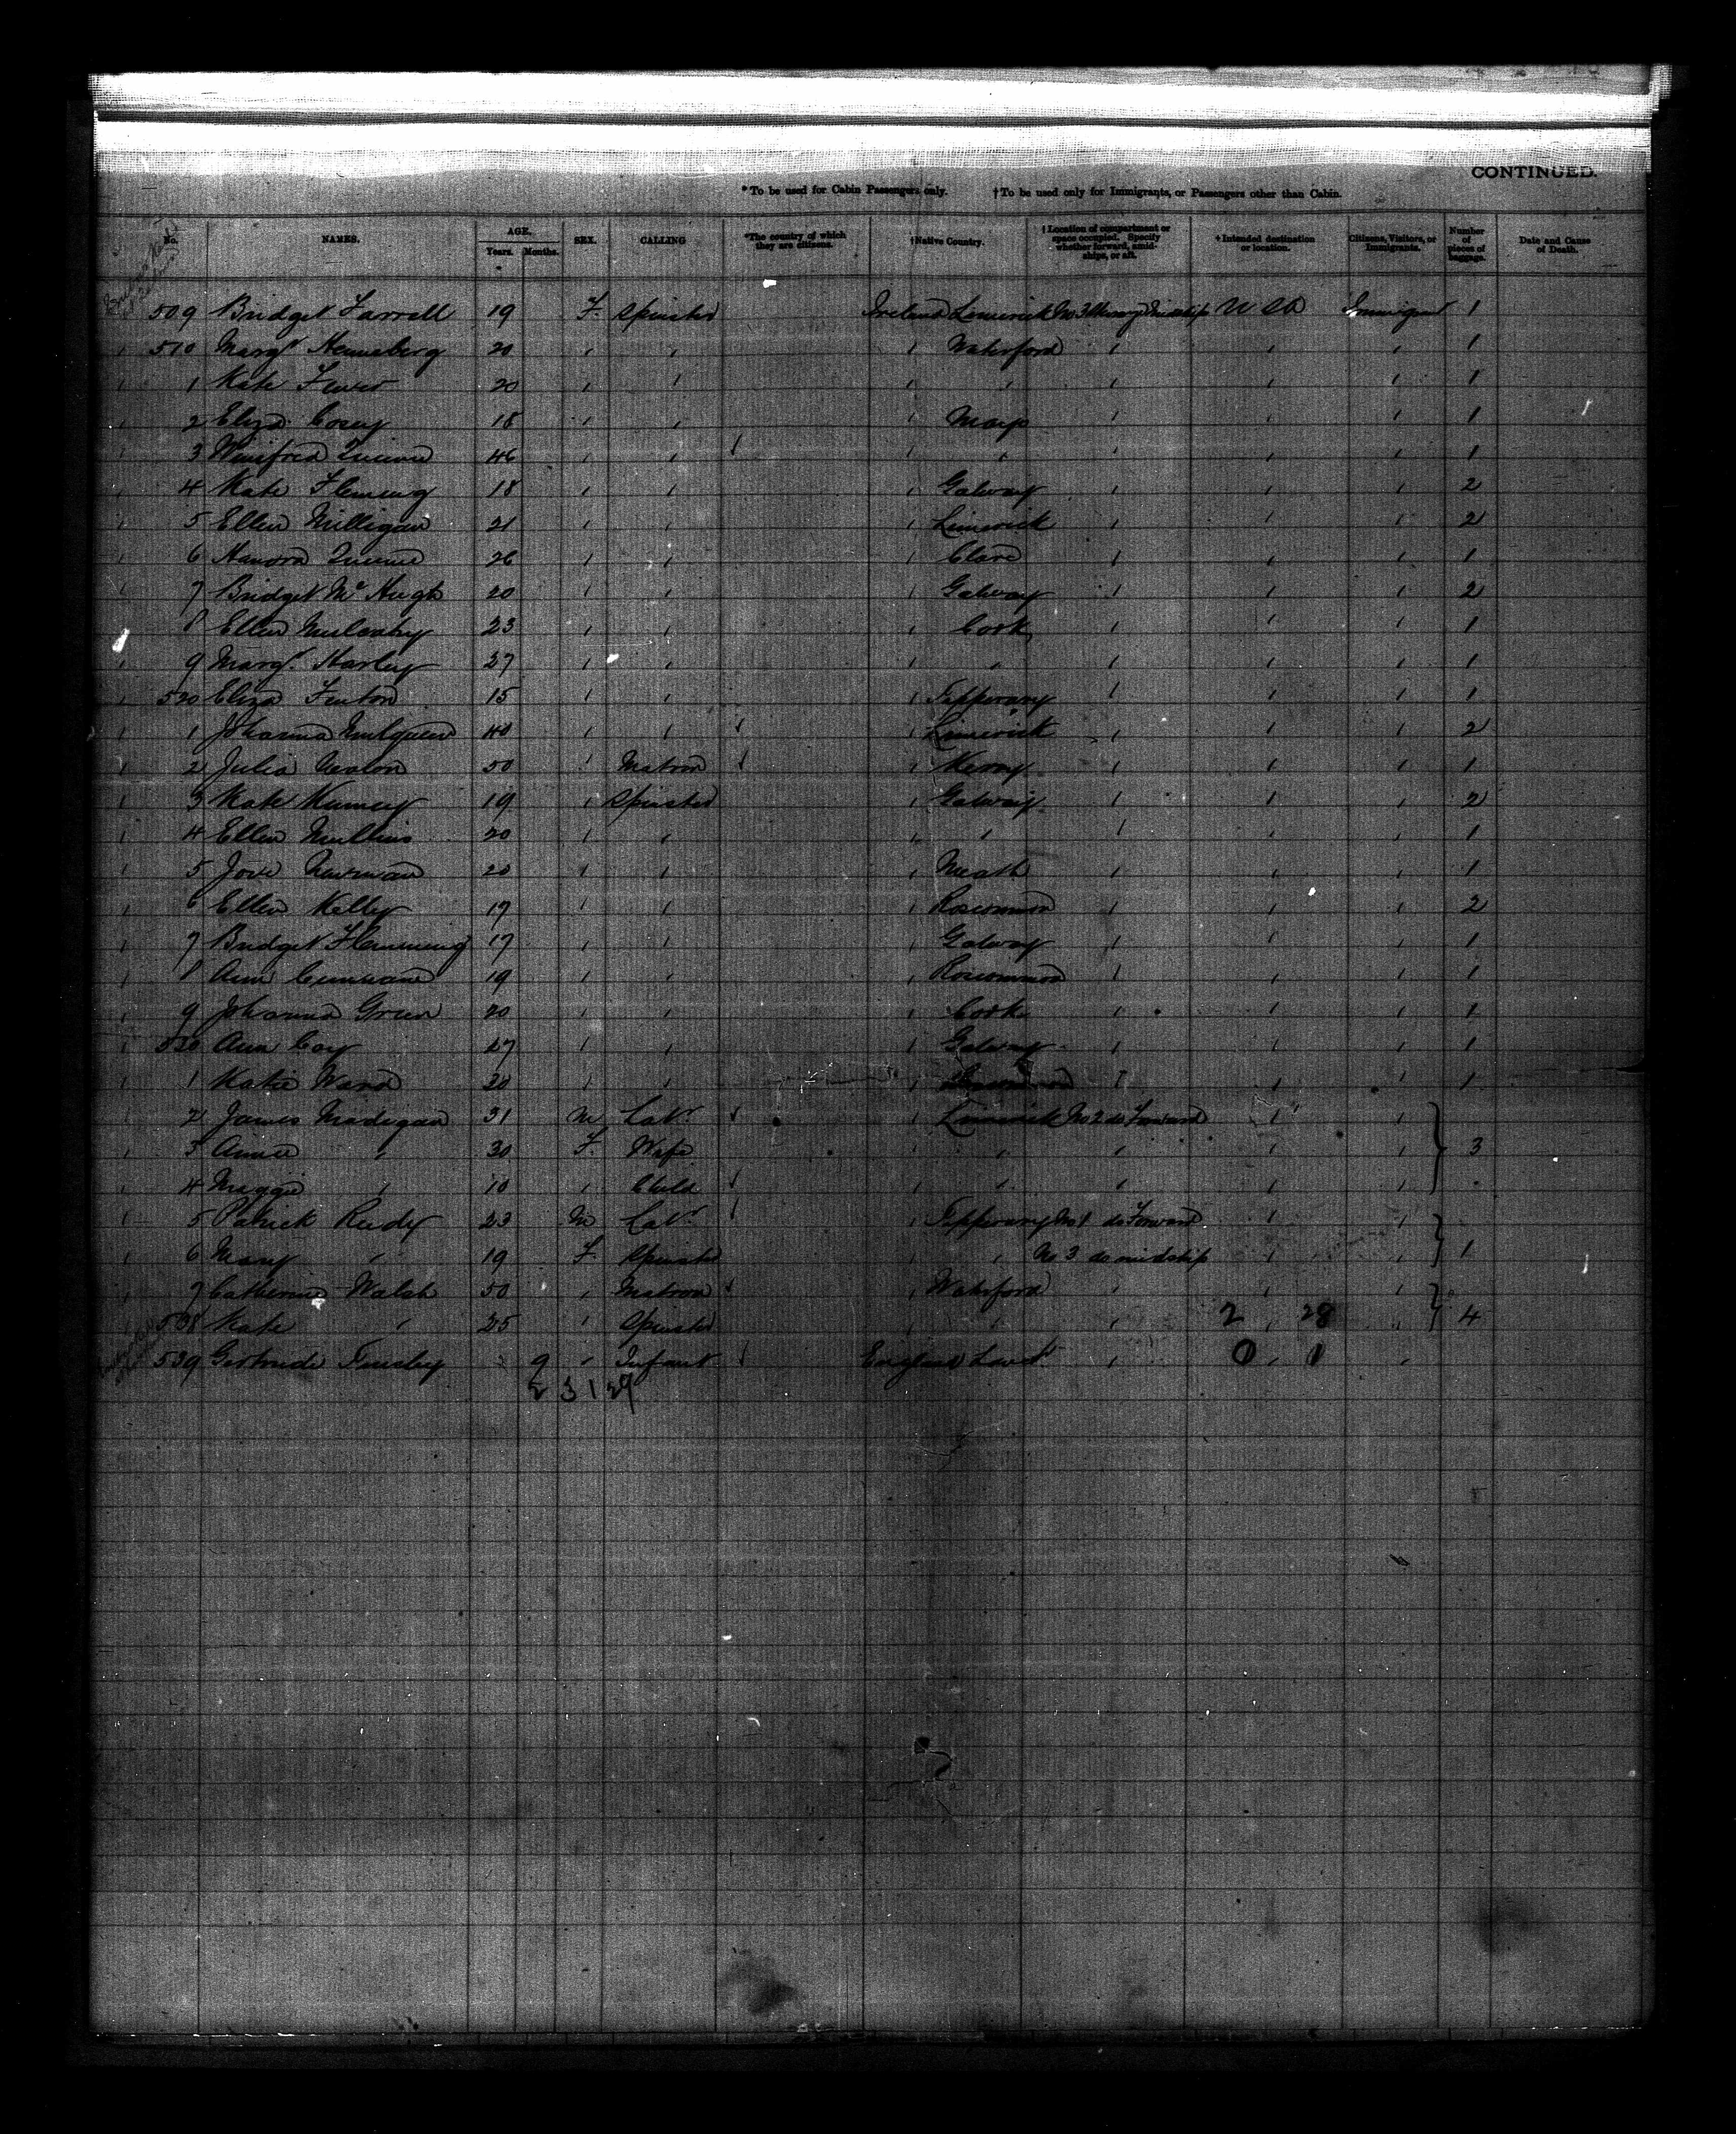 CONTINUED.
*To be used for Cabin Passengers only. †To be used only for Immigrants, or Passengers other than Cabin.
No. NAMES. AGE. Years. Months. SEX. CALLING *The country of which they are citizens. †Native Country. †Location of compartment or space occupied. Specify whether forward, amidships, or aft. †Intended destination or location. Citizens, Visitors, or Immigrants. Number of pieces of baggage. Date and Cause of Death.
509 Bridget Farrell 19 F. Spinster Ireland Limerick No 3 Midship U S A Immigrant 1
510 Margt Henneberg 20 " " " Waterford " " " 1
1 Kate 20 " " " " " " " 1
2 Eliza Cosey 18 " " " Mayo " " " 1
3 Winifred 46 " " " " " " " 1
4 Kate Fleming 18 " " " Galway " " " 2
5 Ellen Milligan 21 " " " Limerick " " " 2
6 Hanora 26 " " " Clare " " " 1
7 Bridget Mc Hugh 20 " " " Galway " " " 2
8 Ellen Mulcahy 23 " " " Cork " " " 1
9 Margt Harley 27 " " " " " " " 1
520 Eliza Fenton 15 " " " Tipperary " " " 1
1 Johanna 40 " " " Limerick " " " 2
2 Julia Nealon 50 " Matron " Kerry " " " 1
3 Kate 19 " Spinster " Galway " " " 2
4 Ellen Mullins 20 " " " " " " " 1
5 Newman 20 " " " Meath " " " 1
6 Ellen Kelly 17 " " " Roscommon " " " 2
7 Bridget Flemming 17 " " " Galway " " " 1
8 Ann 19 " " " Roscommon " " " 1
9 Johanna Green 20 " " " Cork " " " 1
530 Ann Coy 27 " " " Galway " " " 1
1 Katie Ward 20 " " " Roscommon " " " 1
2 James Madigan 31 M Labr " Limerick No 2 do Forward " "
3 Annie " 30 F. Wife " " " " " 3
4 Maggie " 10 " Child " " " " "
5 Patrick Reidy 23 M Labr " Tipperary No 1 do Forward " "
6 Mary " 19 F. Spinster " " No 3 do midship " " 1
7 Catherine Walsh 50 " Matron " Waterford " " "
538 Kate " 25 " Spinster " " " 2 " 28 " 4
539 Gertrude Tinsley 9 " Infant England " 0 " 1 "
2 3 1 29